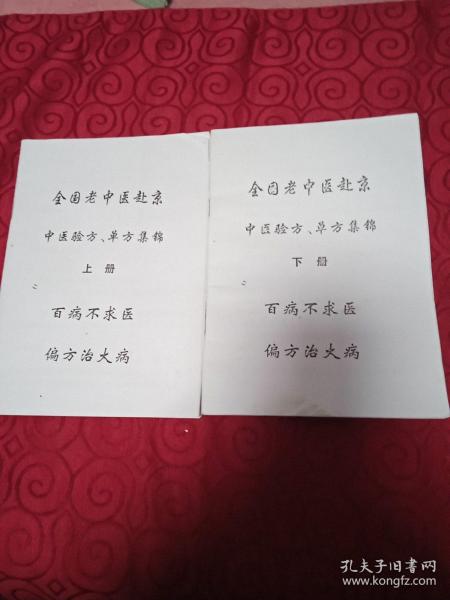 全国老中医赴京
中医验方、单方集锦
上册
百病不求医
偏方治大病
全国老中医赴京
中医验方、单方集锦
下册
百病不求医
偏方治大病
孔夫子旧书网
www.kongfz.com